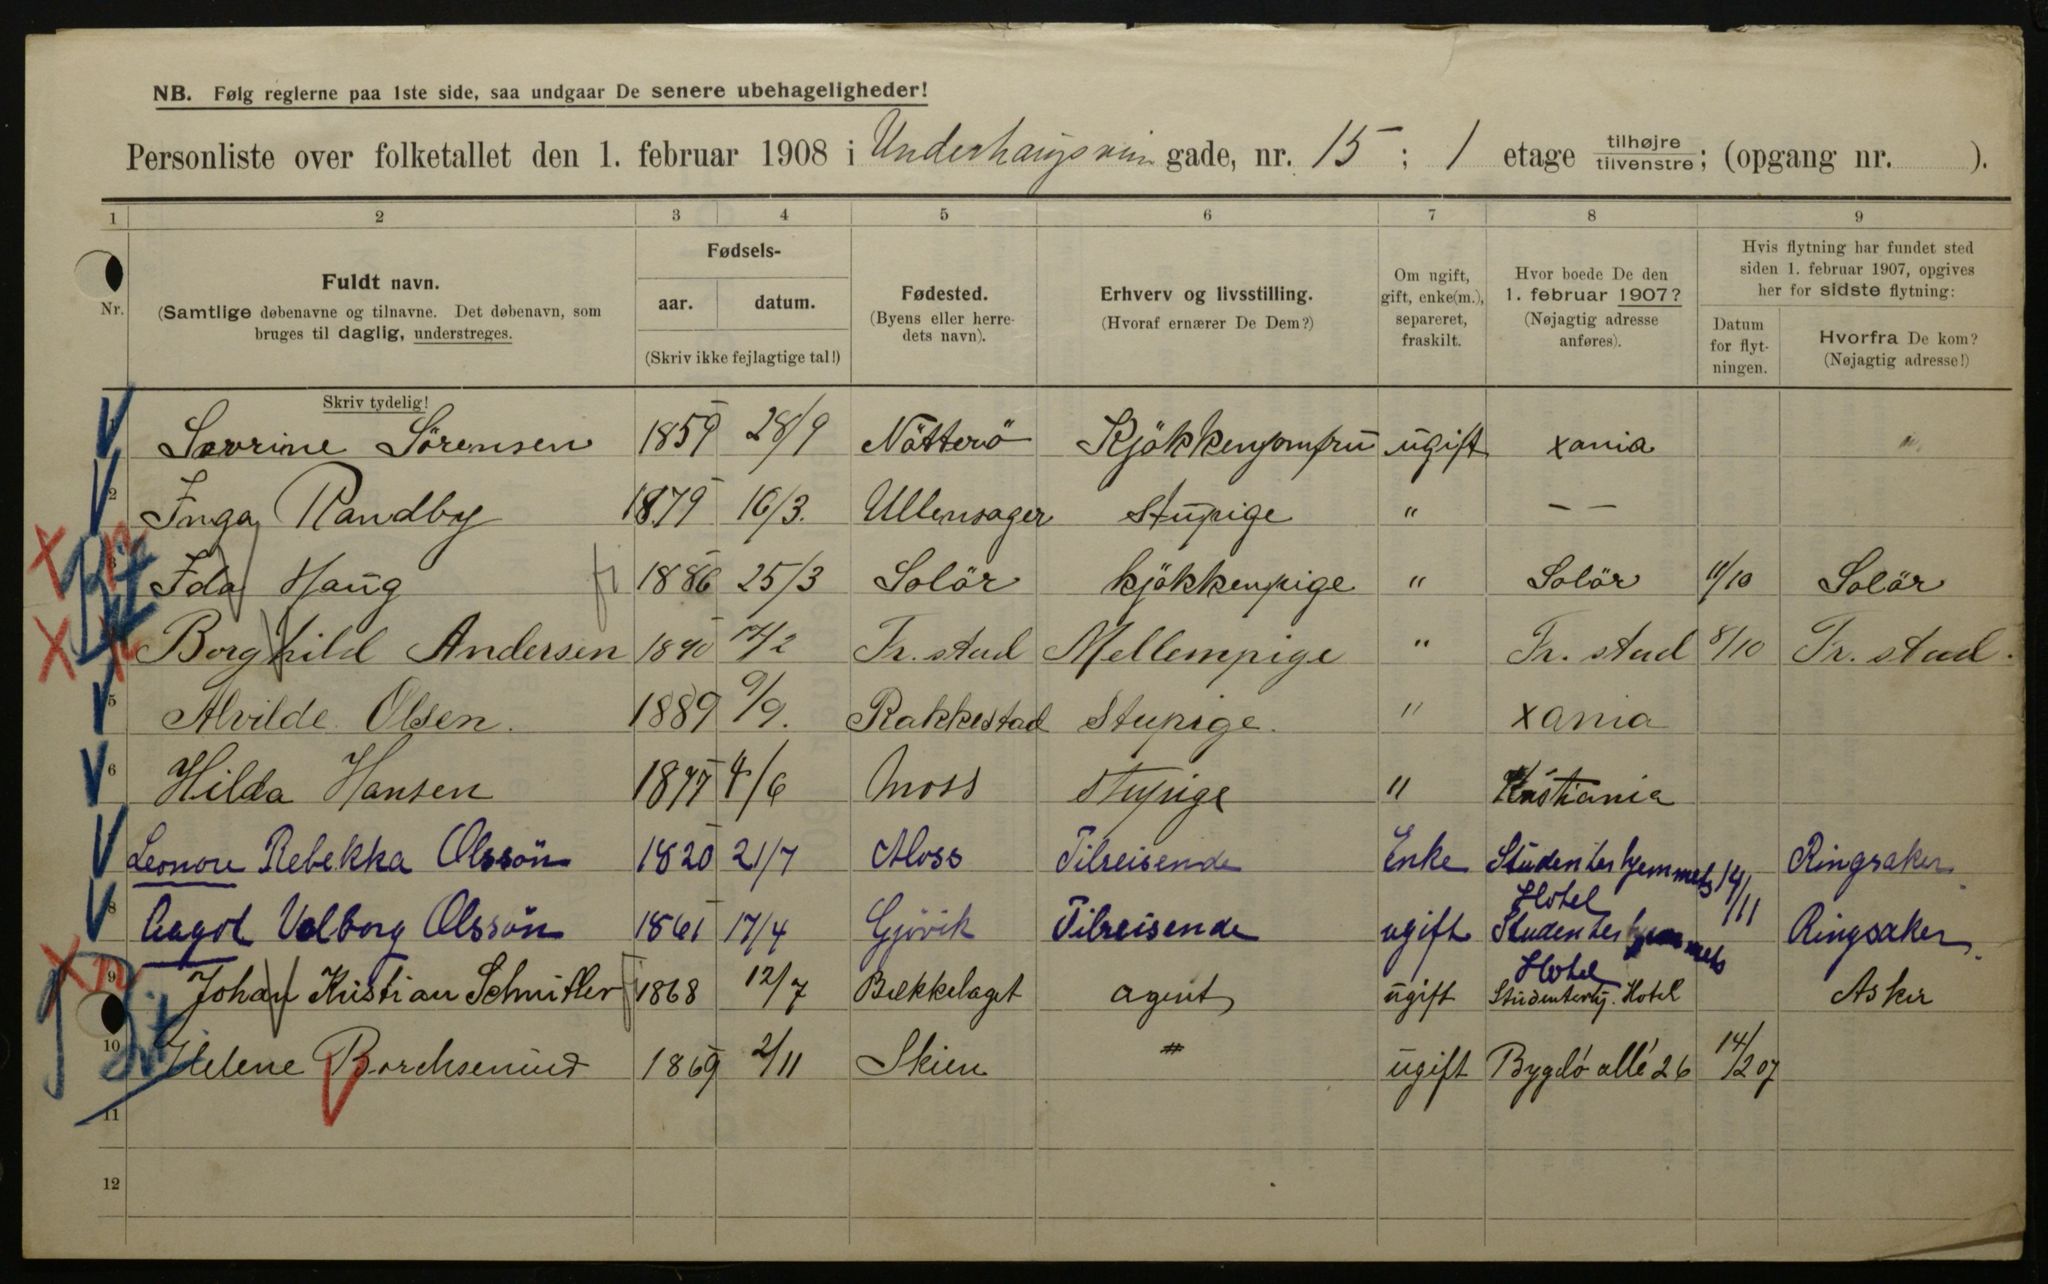 NB. Følg reglerne paa 1ste side, saa undgaar De senere ubehageligheder!
Personliste over folketallet den 1. februar 1908 i Underhaugsvein gade, nr. 15 ; 1 etage tilhøjre tilvenstre ; (opgang nr. ).
1 2 3 4 5 6 7 8 9
Nr.
Fuldt navn.
(Samtlige døbenavne og tilnavne. Det døbenavn, som
bruges til daglig, understreges.
Skriv tydelig!
Fødsels-
aar. datum.
(Skriv ikke fejlagtige tal!)
Fødested.
(Byens eller herre-
dets navn).
Erhverv og livsstilling.
(Hvoraf ernærer De Dem?)
Om ugift,
gift, enke(m.),
separeret,
fraskilt.
Hvor boede De den
1. februar 1907?
(Nøjagtig adresse
anføres).
Hvis flytning har fundet sted
siden 1. februar 1907, opgives
her for sidste flytning:
Datum
for flyt-
ningen.
Hvorfra De kom?
(Nøjagtig adresse!)
Sørensen 1859 28/9 Nötterö Kjökkenjomfru ugift xania
2 Inga Randby 1879 16/3. Ullensager Stupige " — —
3 Ida Haug 1886 25/3 Solör kjökkenpige " Solör 11/10 Solör
Borghild Andersen 1890 17/2 Fr. stad Mellempige " Fr. stad 8/10 Fr. stad.
5 Alvilde Olsen. 1889 9/9. Rakkestad Stupige. " xania
6 Hilda Hansen 1877 4/6 Moss Stupige " Kristiania
Leonore Rebekka Olssön 1820 21/7 Moss Tilreisende Enke Studenterhjemmets Hotel 14/11 Ringsaker.
8 Aagot Valborg Olssön 1861 17/4 Gjövik Tilreisende ugift Studenterhjemmets Hotel Ringsaker.
9 Johan Kristian Schnitler 1868 12/7 Bækkelaget agent ugift Studenterhj. Hotel Asker
10 Helene Borchsenius 1869 2/11 Skien ugift Bygdö allé 26 14/2 07
11
12